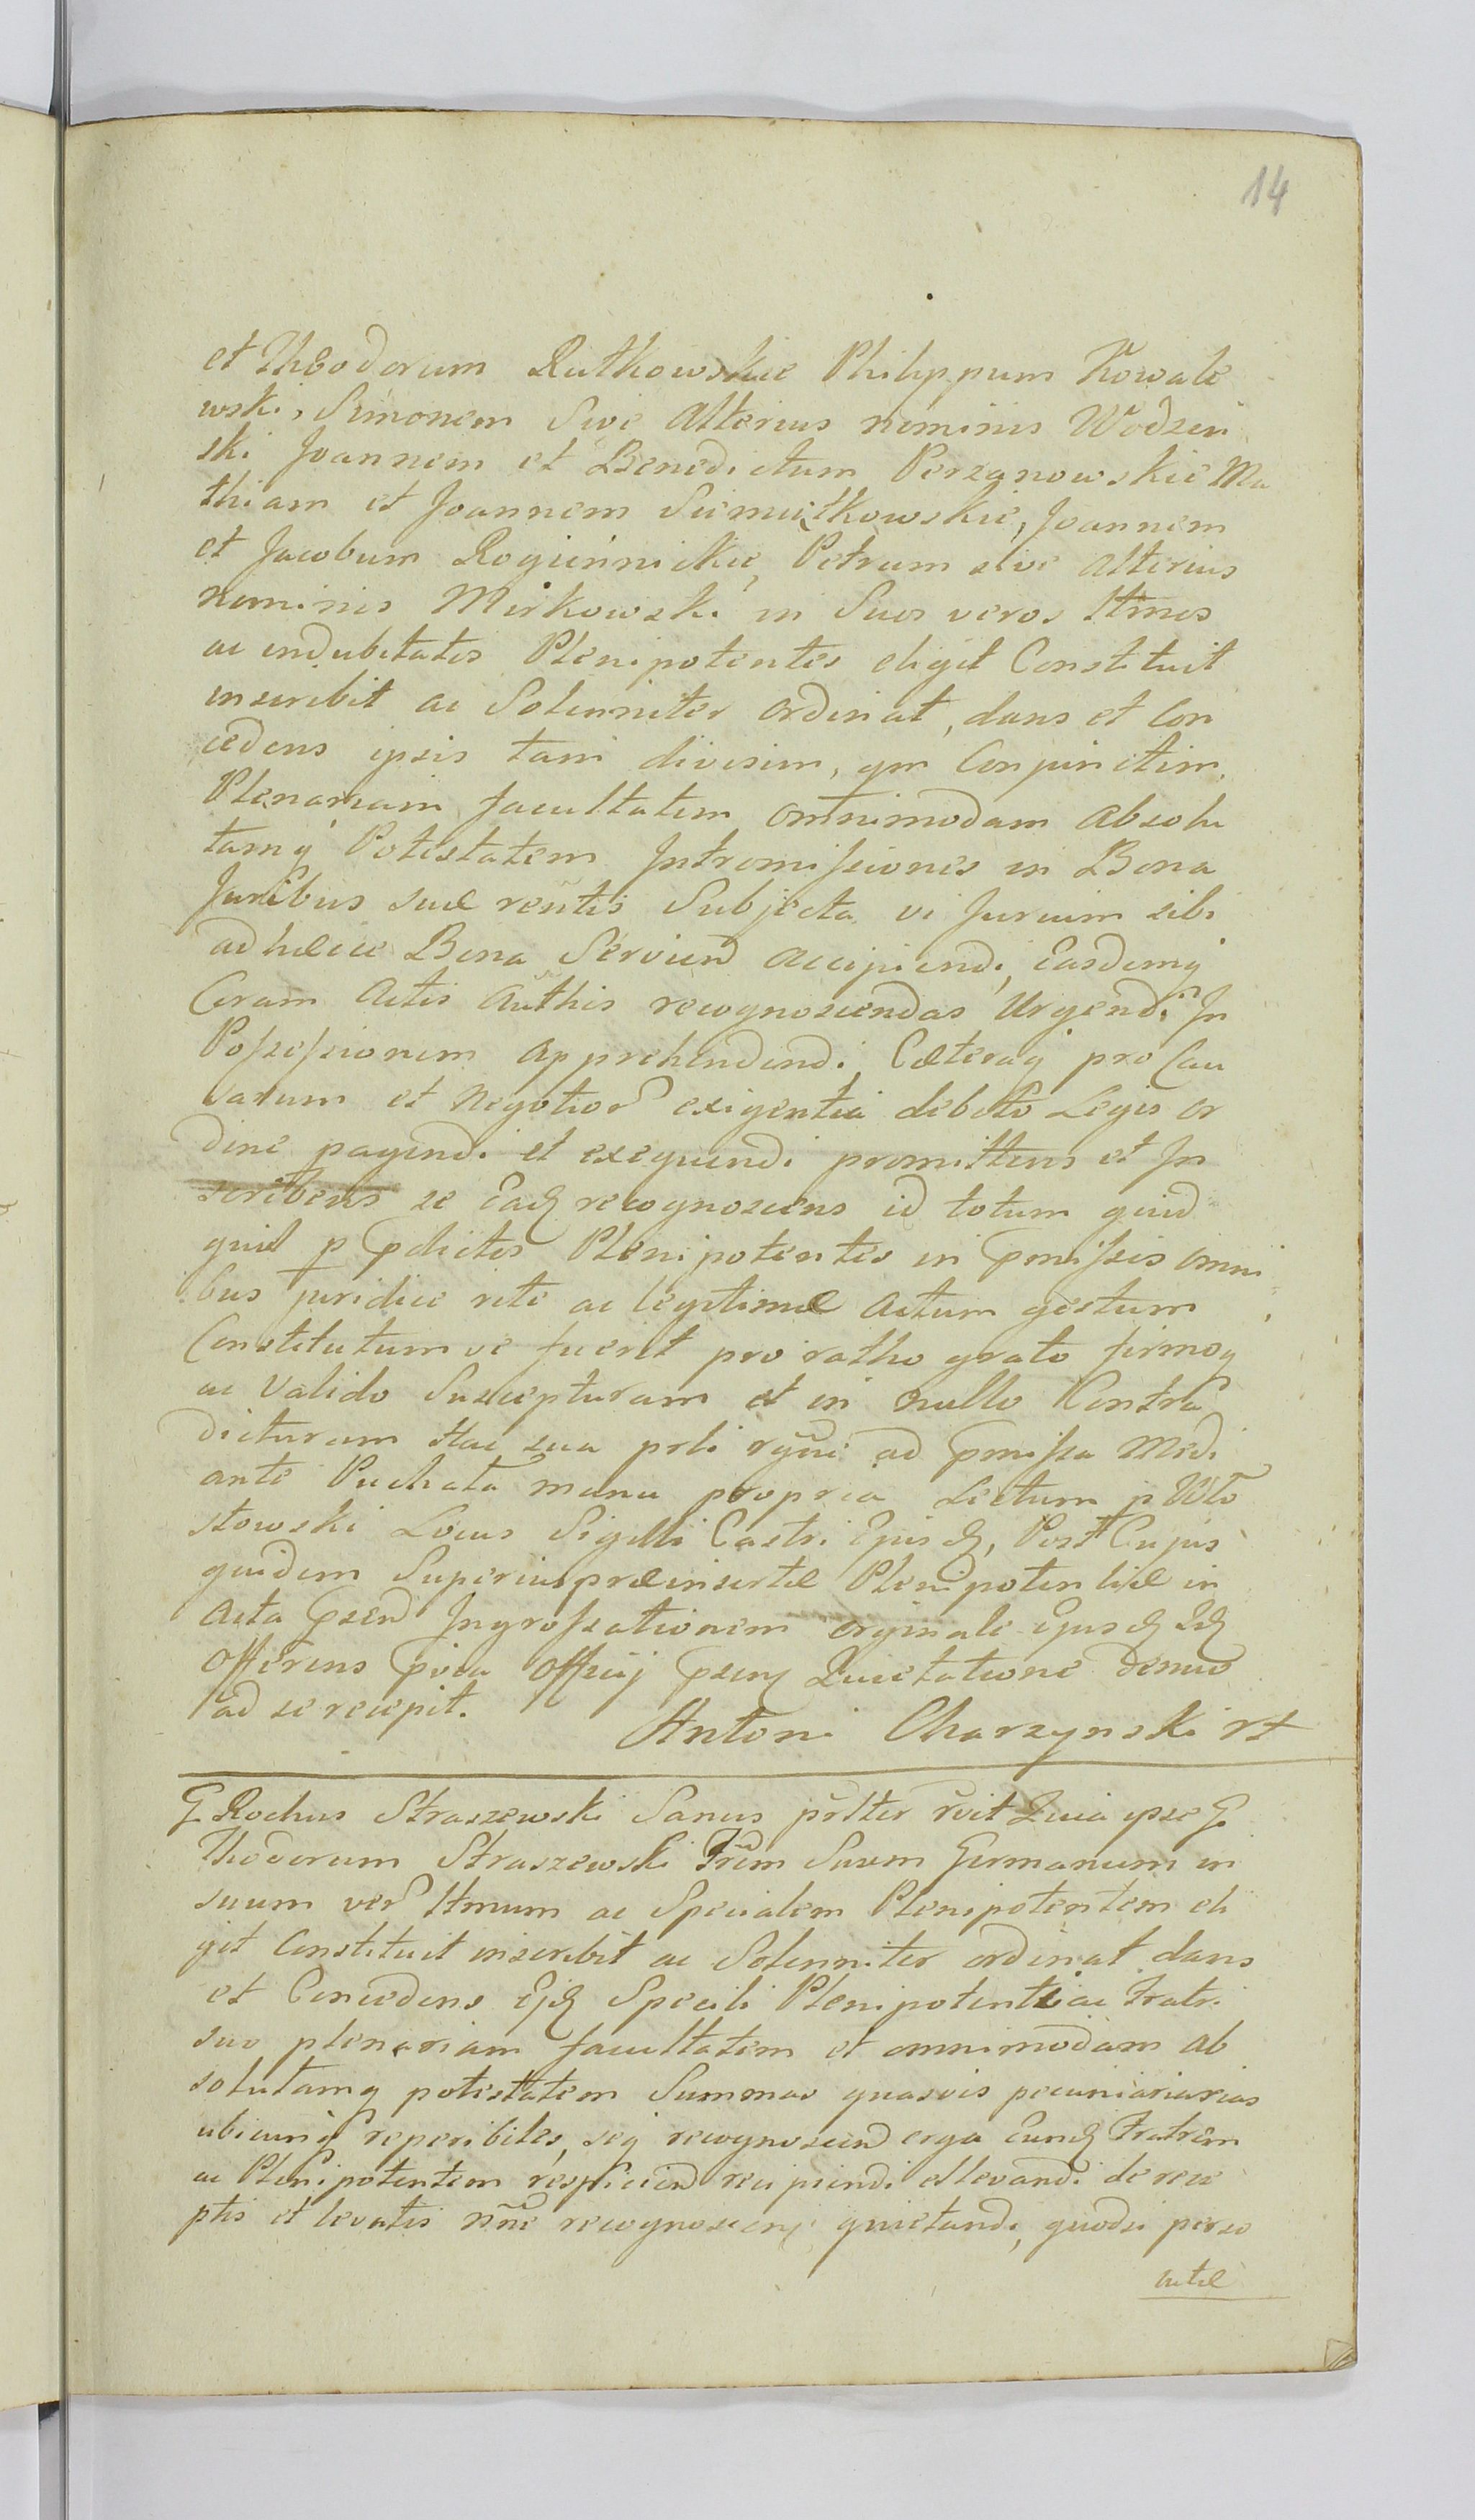 14
et Theodorum Rutkowskie Philippum Kowale
wski, Simonem Sive Alterius nominis Wodzin
ski Joannem et Benedictum Perzanowskie Ma
thiam et Joannem Siemiątkowskie, Joannem
et Jacobum Rogiennickie, Petrum sive Alterius
nominis Mirkowski in Suos veros Ittmos
ac indubitatos Plenipotentes eligit Constituit
inscribit ac Solenniter ordinat, dans et Con
cedens ipsis tam divisim, qm Conjunctim
Plenariam facultatem omnimodam Absolu
tamq Potestatem Intromissiones in Bona
Juribus suæ rentis Subjecta vi Jurium sibi
ad hæcce Bona Serviend accipiendi, Easdemq
Coram Actis Authis recognoscendas Urgendi In
Possessionem apprehendendi Cæteraq pro Cau
sarum et Negotior exigentia debito Legis or
dine pagendi et exequendi promittens et In
scribens se Eadꝫ recognoscens id totum quid
quid p prdictos Plenipotentes in præmissis omni
bus juridice rite ac legitimæ Actum gestum
Constitutumve fuerit pro ratho grato firmoq
ac Valido Suscepturam et in nullo Contra
dicturam Hac sua prli rgne ad præmissa Medi
ante Puchata manu propria Lectum p Wło
stowski Locus Sigilli Castri Ejusdꝫ, Post Cujus
quidem Superius præinsertæ Plenipotentiæ in
Acta præsend Ingrossationem orginale Ejusdꝫ Idꝫ
Offerens pria Officij præsenꝫ Quietatione denuo
ad se recepit.
Antoni Charzynski rt
G Rochus Straszewski Sanus prlter rvit Quia ipse G.
Theodorum Straszewski Frem Suum Germanum in
suum ver Ittmum ac Specialem Plenipotentem eli
git Constituit inscribit ac Solenniter ordinat dans
et Concedens Ejdꝫ Specili Plenipotenti ac Fratri
suo plenariam facultatem et omnimodam ab
solutamq potestatem Summas quasvis pecuniariarias
ubicunq reperibiles, seq recognoscend erga Eundꝫ Fratrem
ac Plenipotentem respiciend recipiendi et levandi de rece
ptis et levatis nne recognoscenꝫ quietandi, quodsi perso